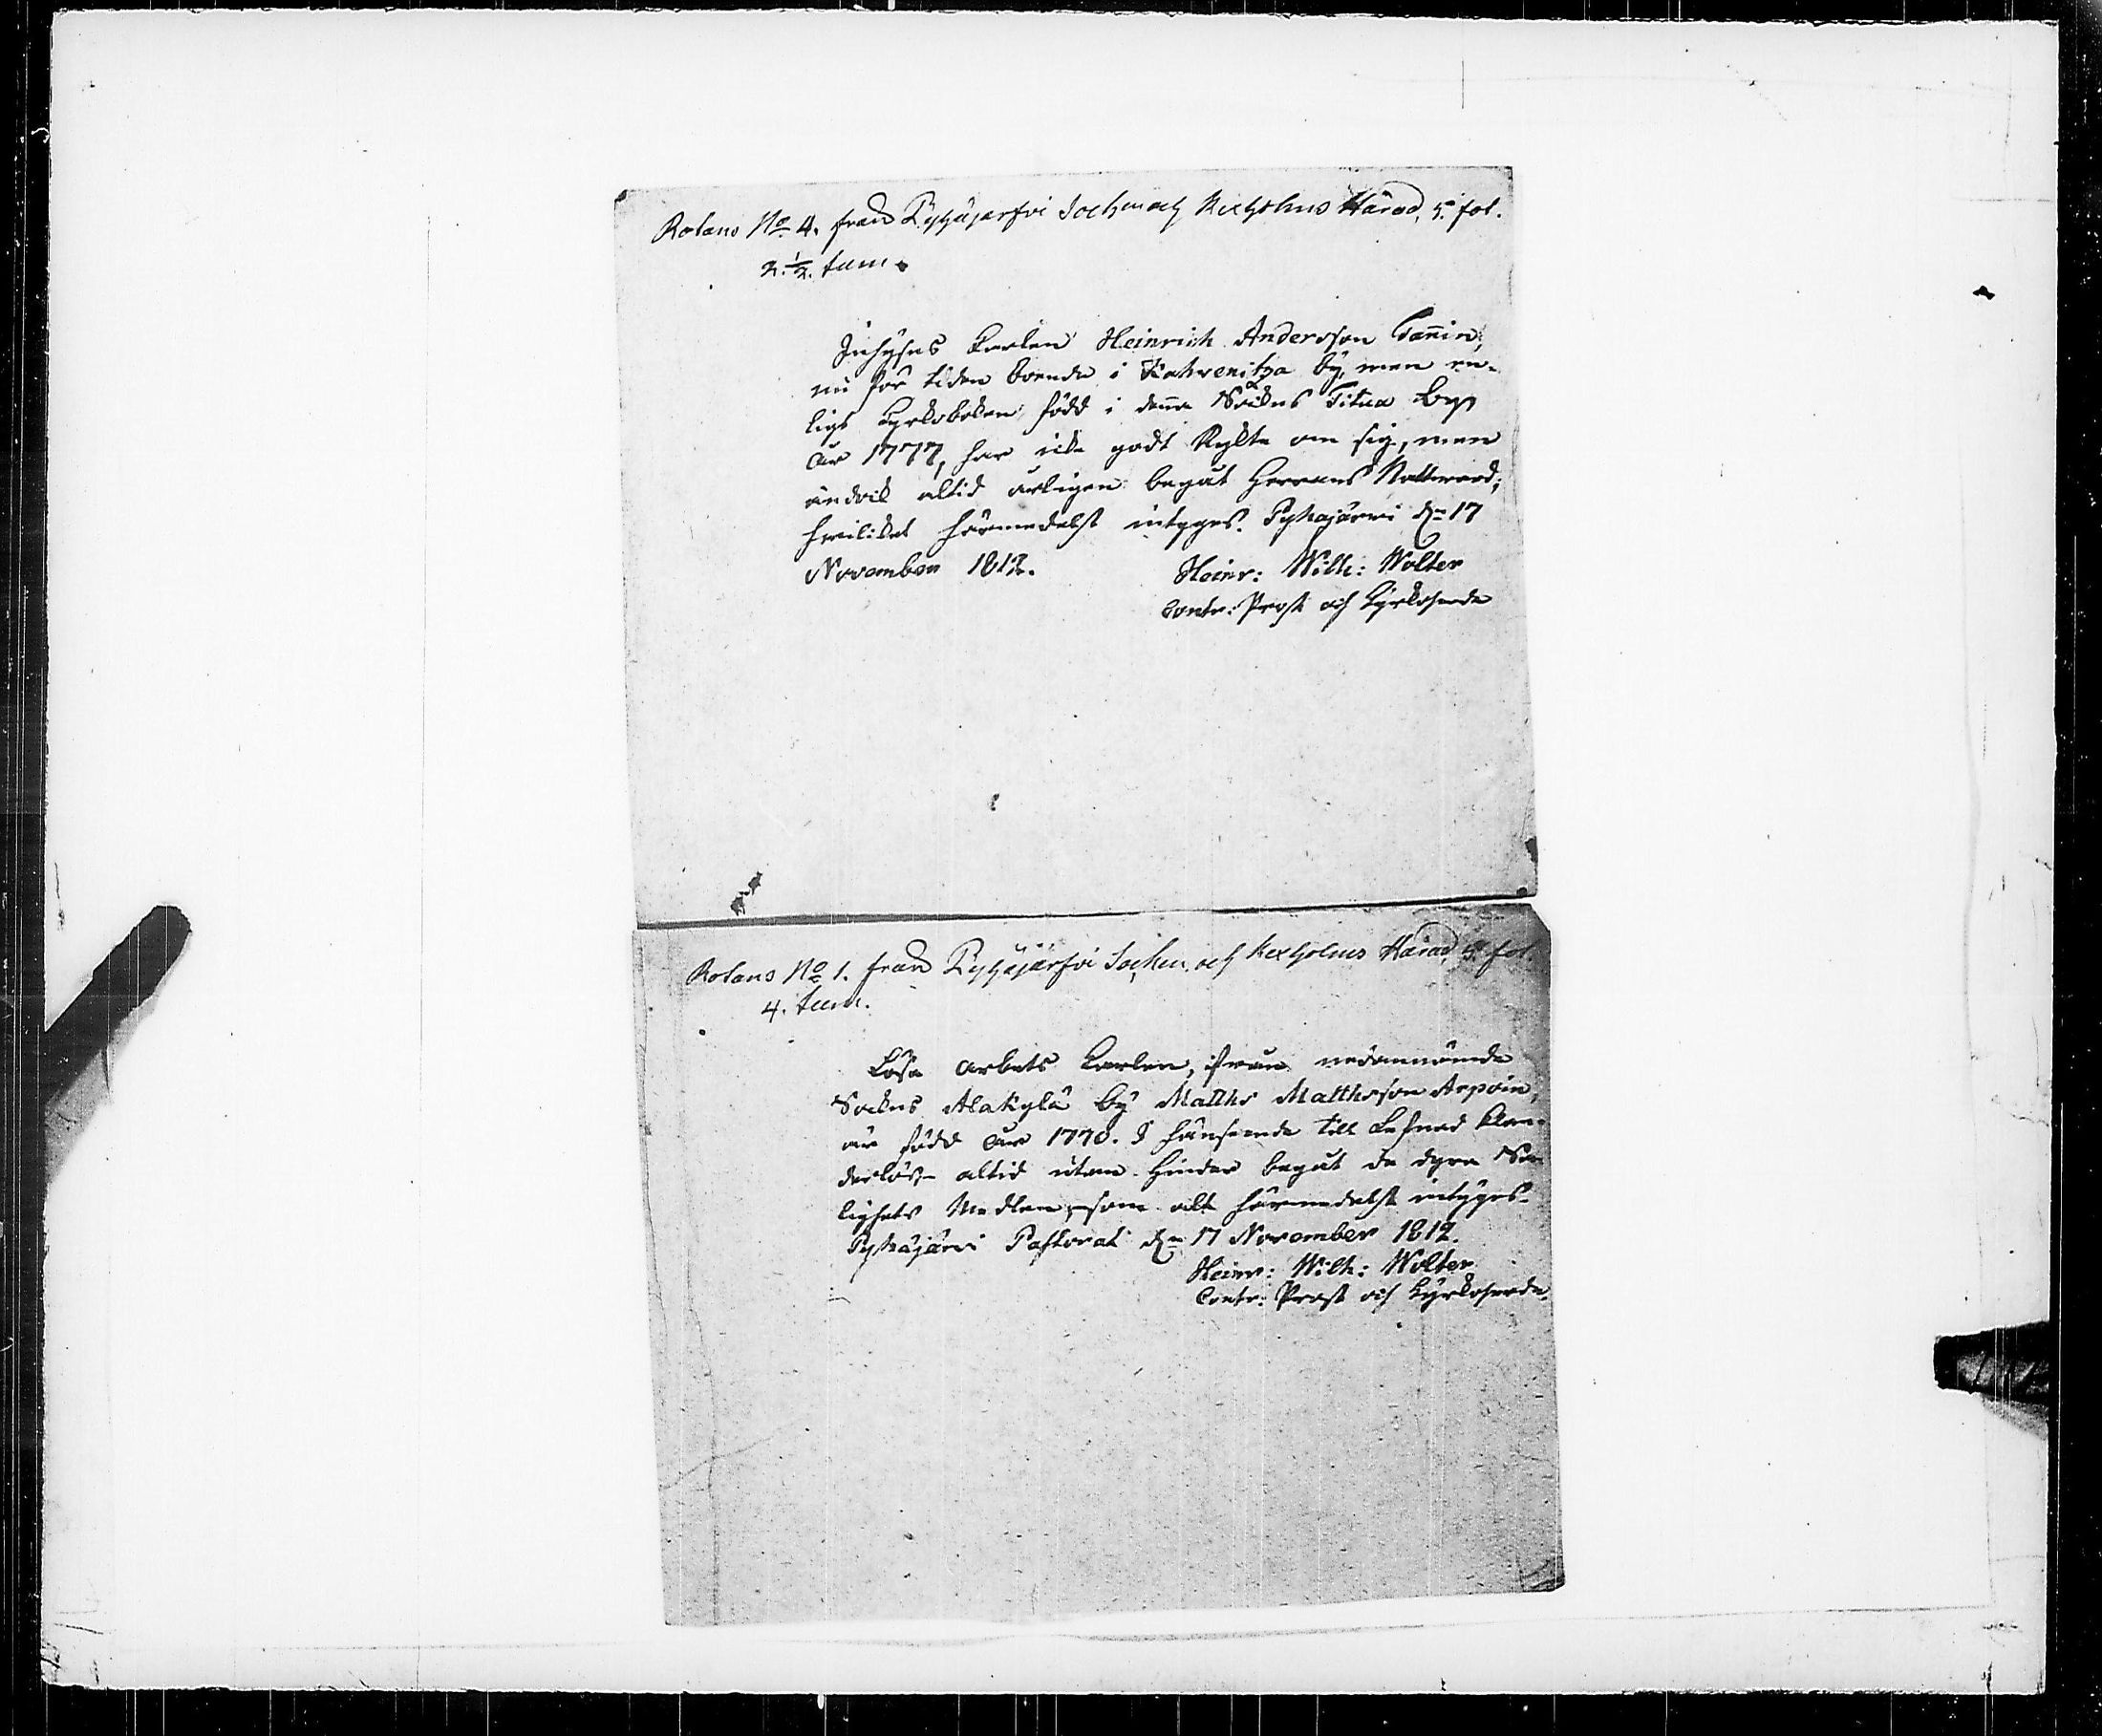 Rotans No 4. från Pyhäjärfvi Sochen och Kexholms Härad, 5. fot.
2. 1/2. tum.
Inhyses Karlen Heinrich Andersson Tanin,
nu för tiden boende i Kahvenitza by, men en-
ligt Kyrkoboken född i denna Sokns Titua By
år 1777, har icke godt Rykte om sig, men
ändock altid årligen begåt Herrans Nattward;
hvilket härmedelst intyges. Pyhäjärwi dn 17
November 1812.
Heinr: Wilh: Wolter
Contr: Prost och Kyrkoherde
Rotans No 1. från Pyhäjärfvi Sochen, och Kexholms Härad, 5. fot.
4. tum.
Lösa arbets Karlen, ifrån nedannämde
Sokns Alakylä by Matths Matthsson Arpoin,
är född år 1770. I hänseende till Lefnad klan-
derlös, altid utan hinder begåt de dyra Sa-
lighets Medlen, som alt härmedelst intyges.
Pyhäjärwi Pastorat dn 17 November 1812.
Heinr: Wilh: Wolter
Contr: Prost och Kyrkoherde.